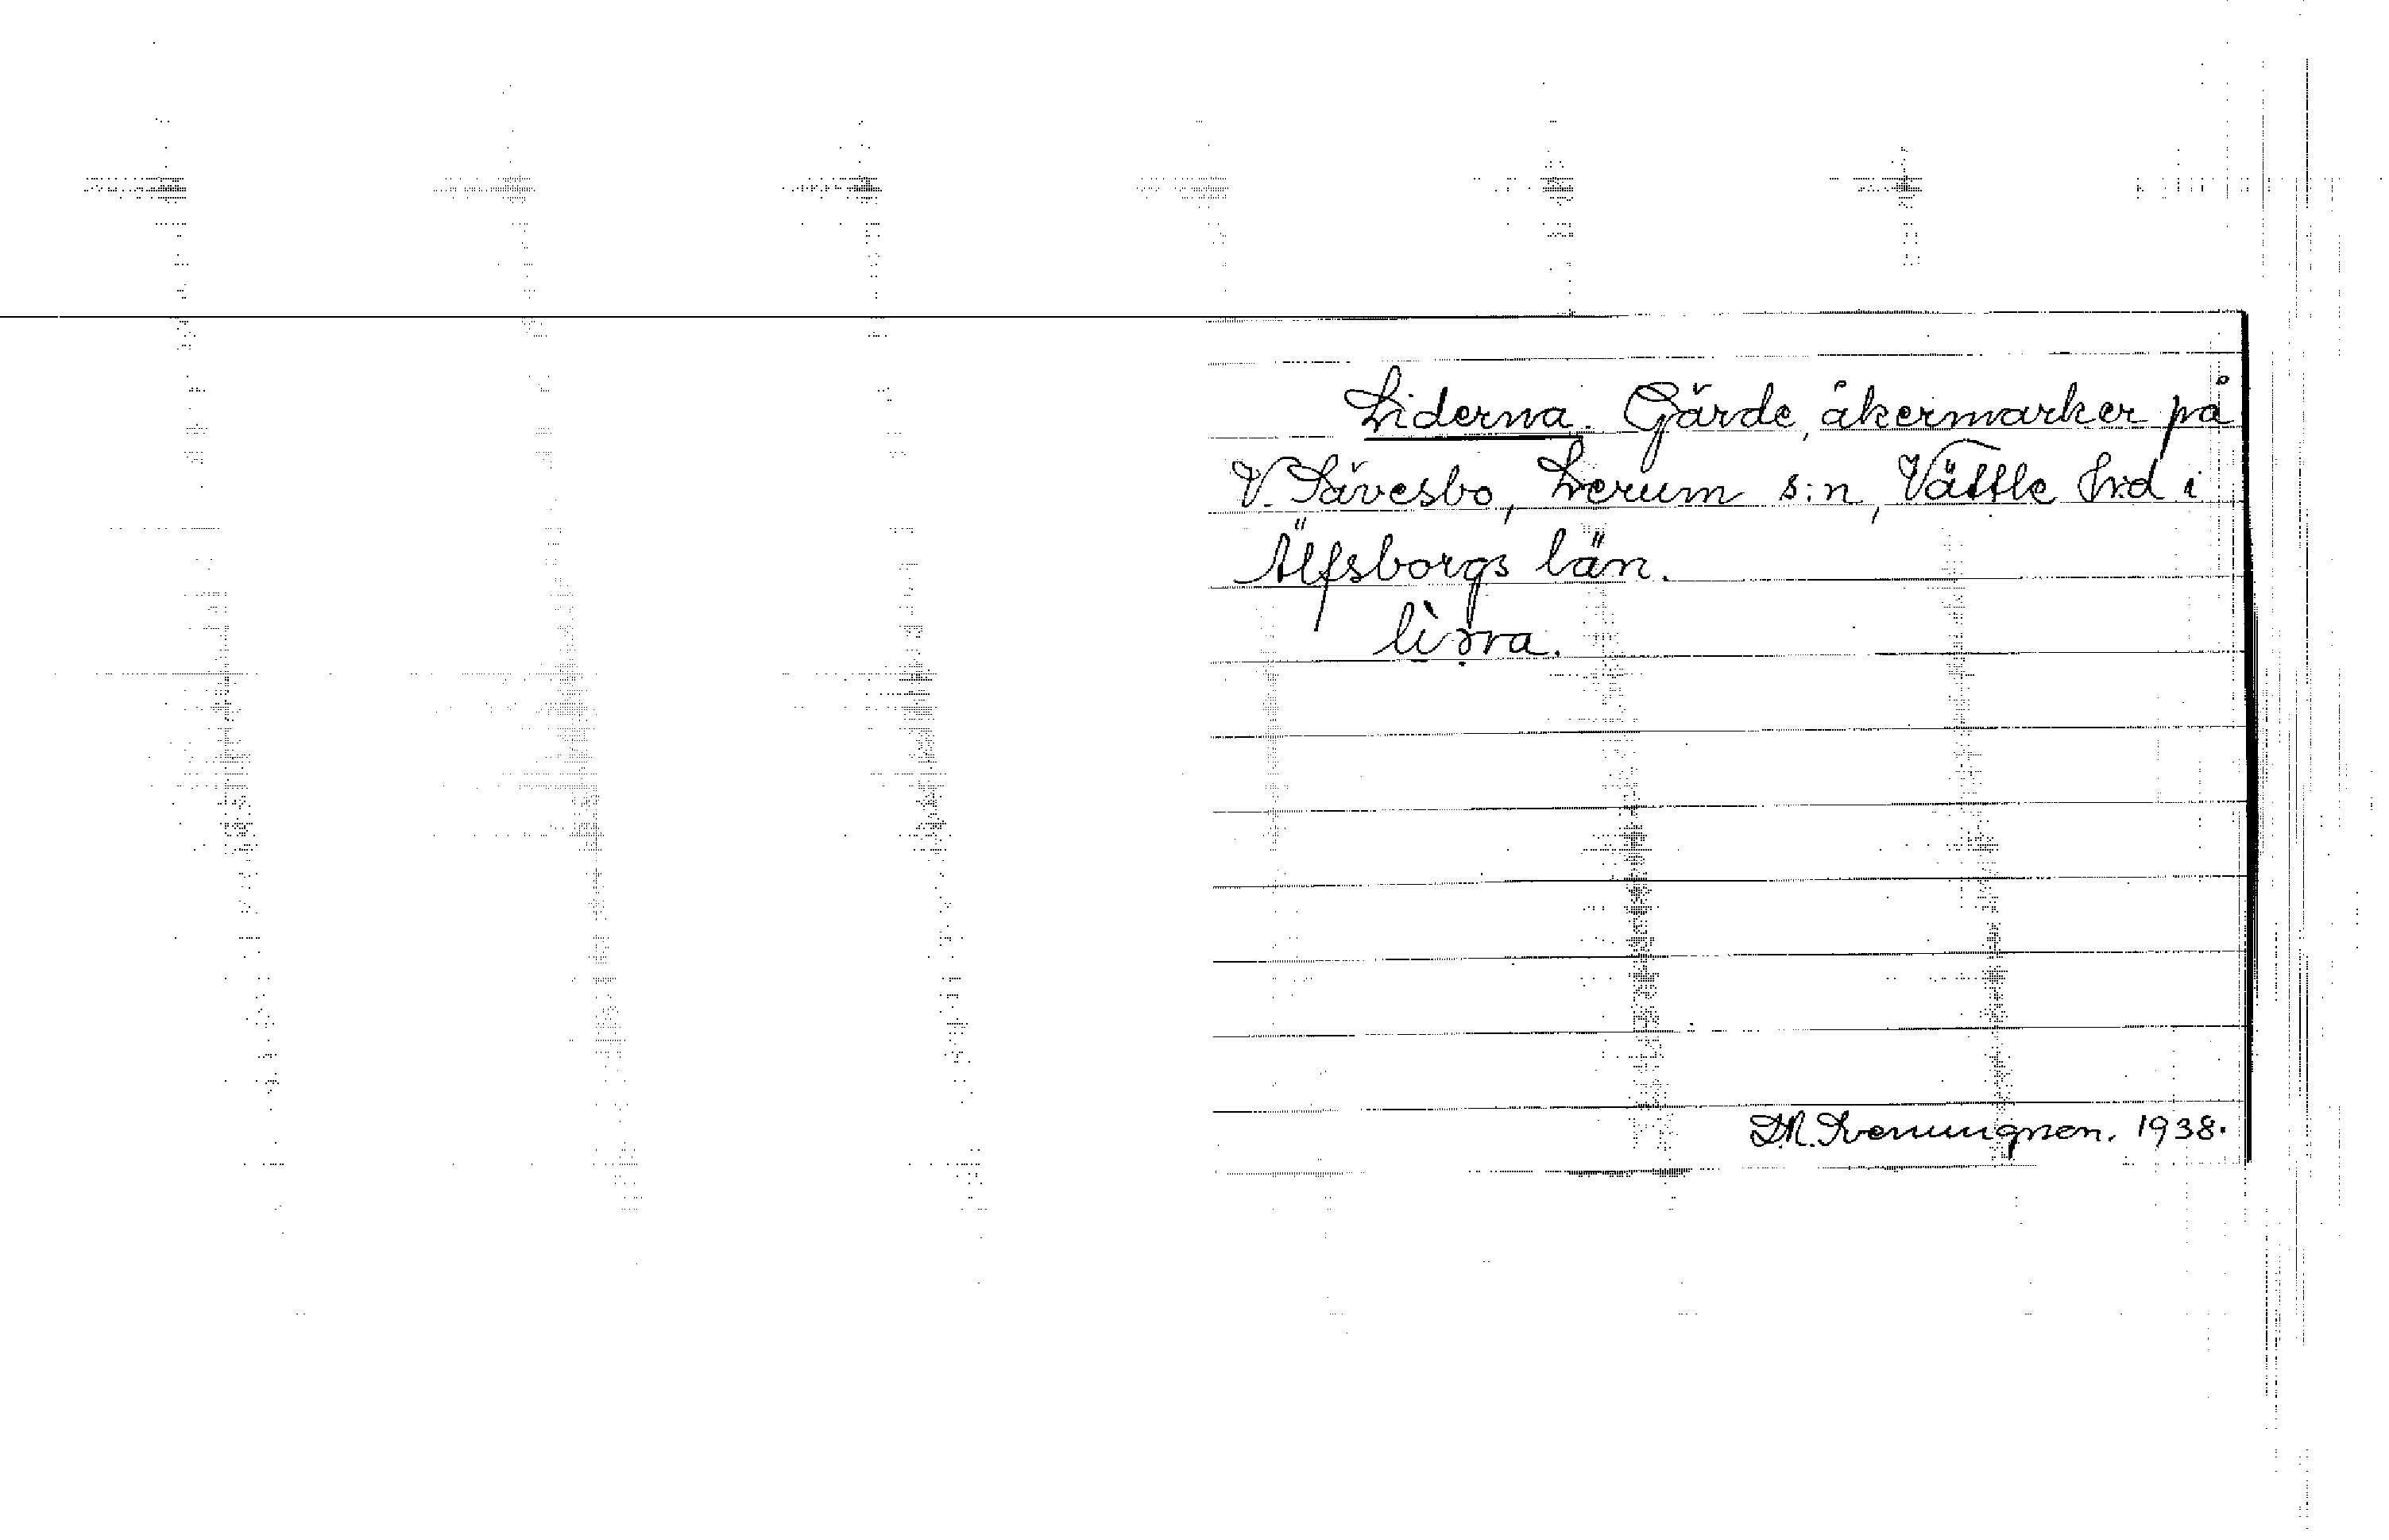 Liderna. Gärde, åkermarker på
V. Sävesbo, Lerum s:n, Vättle hd i
Älfsborgs län.
lìǝra.
1938.